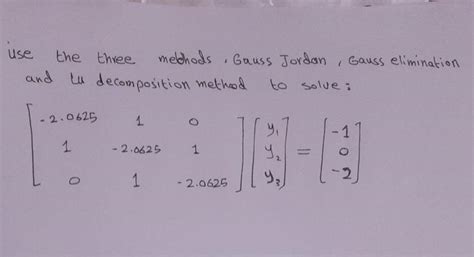 use the three methods, Gauss Jordan, Gauss elimination
and Lu decomposition method to solve:
-2.0625 1 0 y₁ -1
1 -2.0625 1 y₂ = 0
0 1 -2.0625 y₃ -2